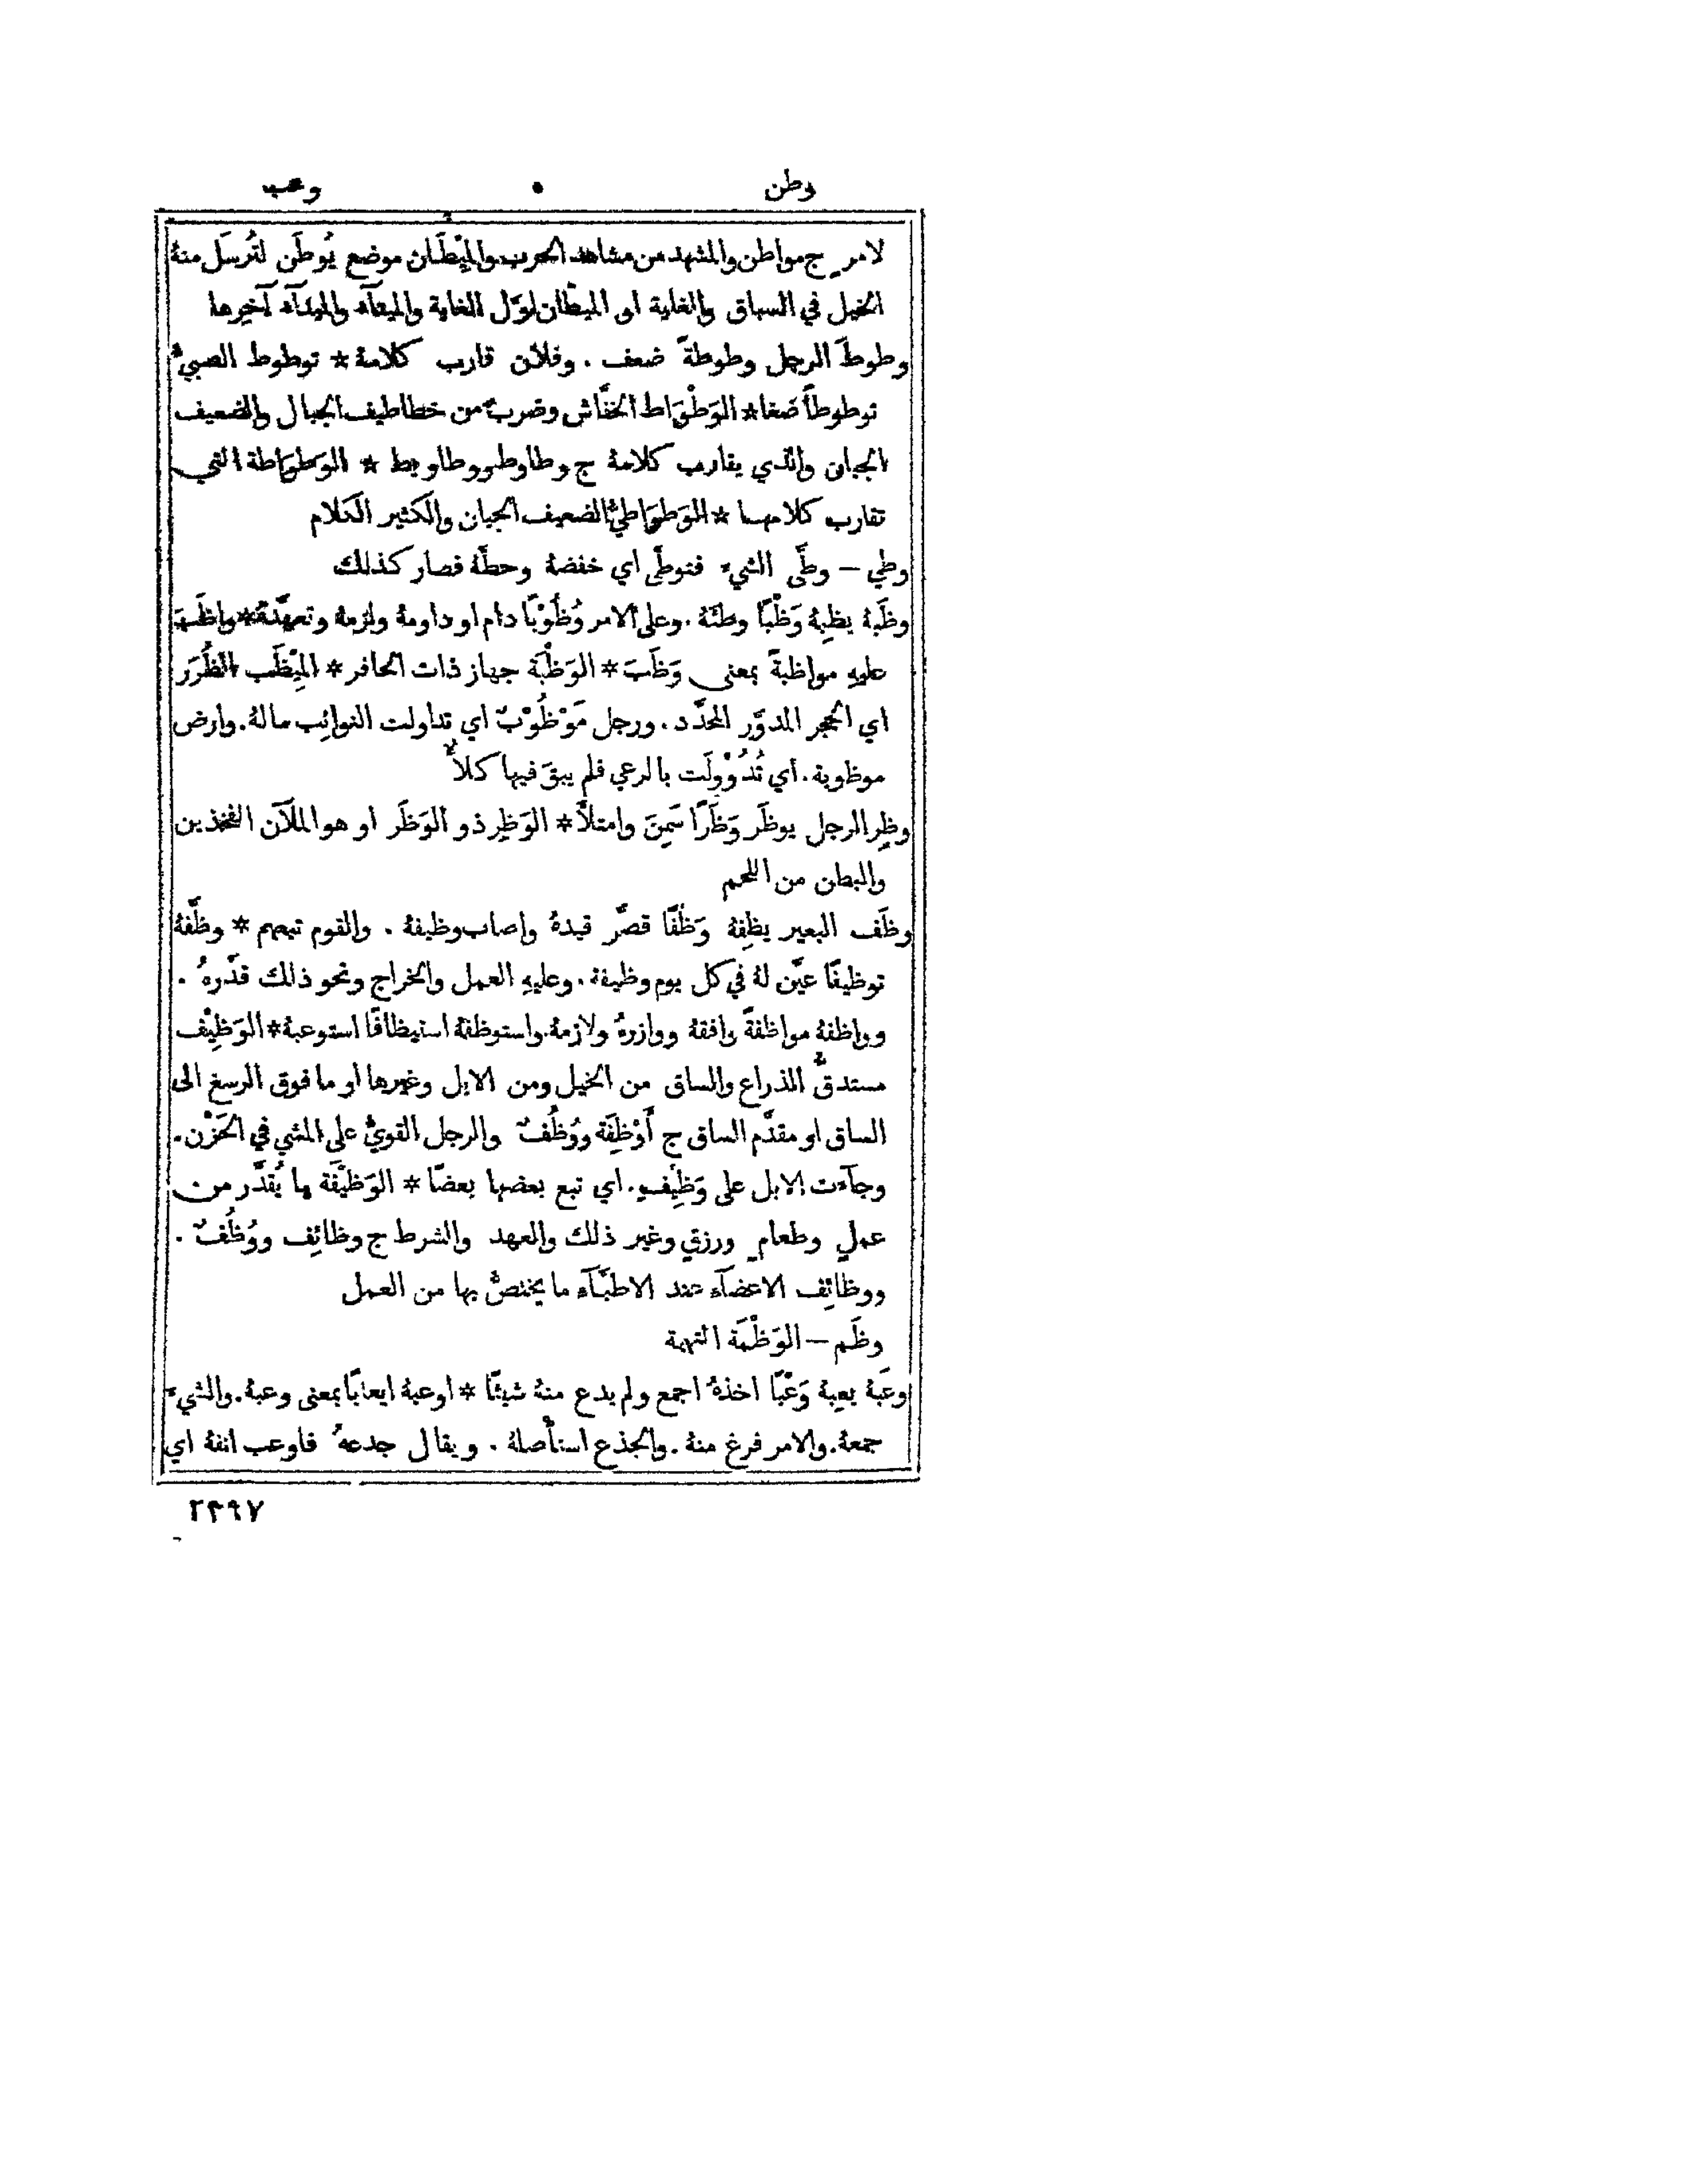 وطن • وعب
لامرٍ ج مواطن والمشهد من مشاهد الحرب والمِيْطَان موضع يُوطَن لتُرسَل منهُ
الخيل في السباق والغاية او الميطان اوّل الغاية والميتآء والميدآء آخِرها
وطوطَ الرجل وطوطةً ضعف . وفلان قارب كلامهُ * توطوط الصبيُّ
توطوطاً ضغا * الوَطْوَاط الخفَّاش وضربٌ من خطاطيف الجبال والضعيف
الجبان والذي يقارب كلامهُ ج وطاوط ووطاويط * الوَطوَاطة التي
تقارب كلامها * الوَطوَاطيُّ الضعيف الجبان والكثير الكلام
وطي – وطَّى الشيءَ فتوطَّى اي خفضهُ وحطَّهُ فصار كذلك
وظَبهُ يظِبهُ وَظْبًا وطئهُ . وعلى الامر وُظُوْبًا دام او داومهُ ولزمهُ وتعهَّدهُ * واظَب
عليهِ مواظبةً بمعنى وَظَبَ * الوَظْبَة جهاز ذات الحافر * المِيْظَب الظُرَر
اي الحجر المدوَّر المحدَّد . ورجل مَوْظُوْبٌ اي تداولت النوائِب مالهُ . وارض
موظوبة . أي تُدُوْوِلَت بالرعي فلم يبقَ فيها كلأٌ
وظِر الرجل يوظَر وَظَرًا سَمِنَ وامتلأَ * الوَظِر ذو الوَظَر او هو الملآن الفخذين
والبطن من اللحم
وظَف البعير يظِفهُ وَظْفًا قصَّر قيدهُ واصاب وظيفهُ . والقوم تبعهم * وظَّفهُ
توظيفًا عيَّن لهُ في كل يوم وظيفة . وعليهِ العمل والخراج ونحو ذلك قدَّرهُ .
وواظفهُ مواظفةً وافقهُ ووازرهُ ولازمهُ . واستوظفهُ استيظافًا استوعبهُ * الوَظِيْف
مستدقُّ الذراع والساق من الخيل ومن الابل وغيرها او ما فوق الرسغ الى
الساق او مقدَّم الساق ج أَوْظِفَة ووُظُفٌ والرجل القويُّ على المشي في الحَزْن .
وجآءت الابل على وَظِيْفٍ . اي تبع بعضها بعضًا * الوَظيْفَة ما يُقدَّر من
عملٍ وطعامٍ ورزقٍ وغير ذلك والعهد والشرط ج وظائِف ووُظُفٌ .
ووظائِف الاعضآء عند الاطبَّآء ما يختصُّ بها من العمل
وظَم – الوَظْمَة التهمة
وعَبهُ يعِبهُ وَعْبًا اخذهُ اجمع ولم يدع منهُ شيئًا * اوعبهُ ايعابًا بمعنى وعبهُ . والشيءَ
جمعهُ . والامر فرغ منهُ . والجذع استأصلهُ . ويقال جدعهُ فاوعب انفهُ اي
٢٣٩٧